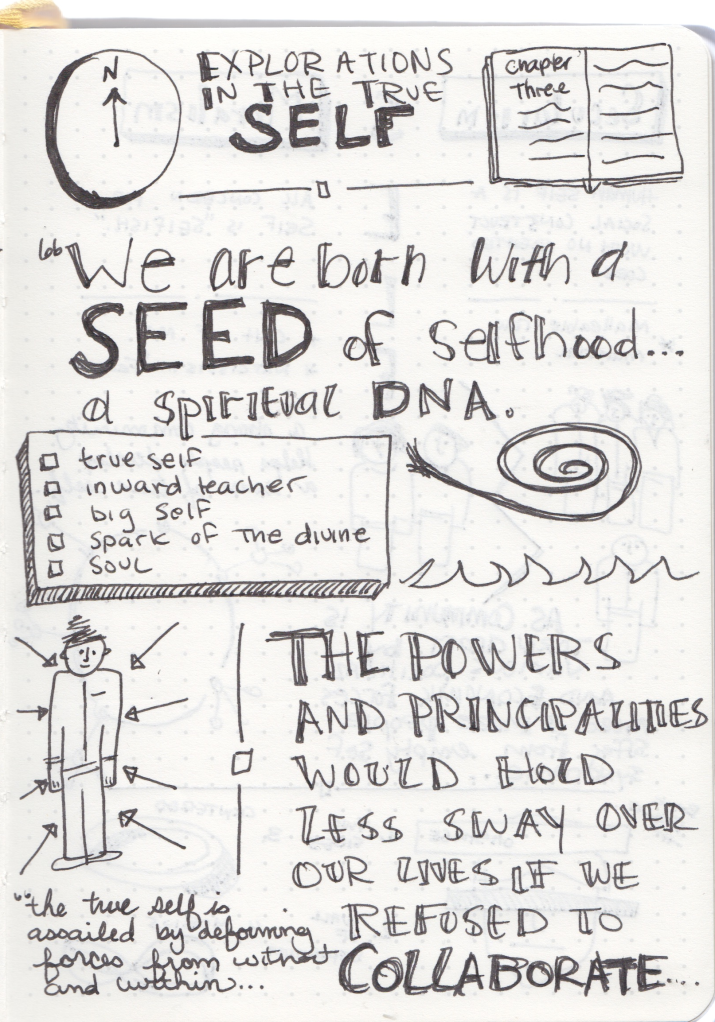 N
EXPLORATIONS
IN THE TRUE
SELF
Chapter
Three
"We are born with a
SEED of selfhood...
a spiritual DNA.
true self
inward teacher
big self
spark of the divine
soul
THE POWERS
AND PRINCIPALITIES
WOULD HOLD
LESS SWAY OVER
OUR LIVES IF WE
REFUSED TO
COLLABORATE....
"the true self is
assailed by deforming
forces from without
and within...